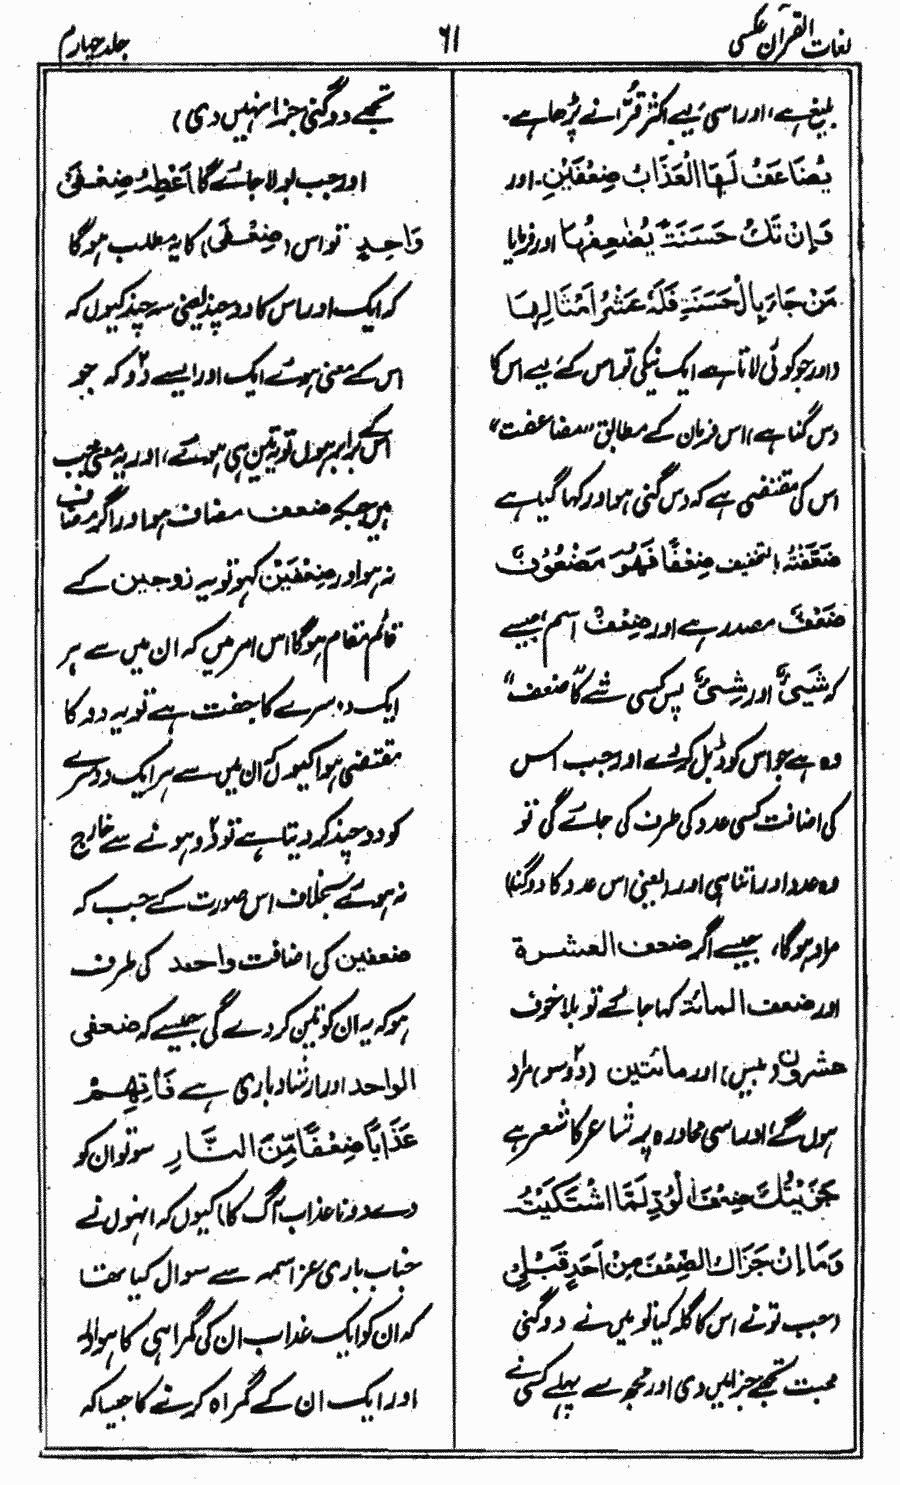 لغات القرآن عکسی
۶۱
جلد چہارم
بلیغ ہے، اور اسی لیے اکثر قراء نے پڑھا ہے۔
یُضَاعَفْ لَہَا الْعَذَابُ ضِعْفَیْنِ۔ اور
وَاِنْ تَکُ حَسَنَۃً یُّضٰعِفْہَا اور فرمایا
مَنْ جَاءَ بِالْحَسَنَۃِ فَلَہٗ عَشْرُ اَمْثَالِہَا
(اور جو کوئی لاتا ہے ایک نیکی تو اس کے لیے اس کا
دس گنا ہے) اس فرمان کے مطابق "مضاعفت"
اس کی مقتضی ہے کہ دس گنی ہو اور کہا گیا ہے
ضَعَفْتُہٗ بالتخفیف ضِعْفًا فَہُوَ مَضْعُوْفٌ
ضَعْفٌ مصدر ہے اور ضِعْفٌ اسم، جیسے
کہ شَیْءٌ اور شِیْءٌ پس کسی شے کا "ضعف"
وہ ہے جو اس کو ڈبل کر دے اور جب اس
کی اضافت کسی عدد کی طرف کی جائے گی تو
وہ عدد اور اتنا ہی اور (یعنی اس عدد کا دوگنا)
مراد ہوگا، جیسے اگر ضعف العشرۃ
اور ضعف المائۃ کہا جائے تو بلا خوف
عشرون (بیس) اور مائتین (دو سو) مراد
ہوں گے، اور اسی محاورہ پر شاعر کا شعر ہے
جَزَیْتُکَ ضِعْفَ الْوُدِّ لَمَّا اشْتَکَیْتُہٗ
وَمَا اِنْ جَزَاکَ الضِّعْفَ مِنْ اَحَدٍ قَبْلِیْ
(جب تو نے اس کا گلہ کیا تو میں نے دوگنی
محبت تجھے جزا میں دی اور مجھ سے پہلے کسی نے
تجھے دوگنی جزا نہیں دی)
اور جب بولا جائے گا اَعْطِہٖ ضِعْفَیْ
وَاحِدٍ تو اس (ضِعْفَی) کا یہ مطلب ہوگا
کہ ایک اور اس کا دو چند یعنی سہ چند کیوں کہ
اس کے معنی ہوئے ایک اور ایسے دو کہ جو
اس کے برابر ہوں تو یہ تین ہی ہوئے، اور یہ معنی جب
ہیں جبکہ ضعف مضاف ہو اور اگر مضاف
نہ ہو اور ضِعْفَیْن کہو تو یہ زوجین کے
قائم مقام ہوگا اس امر میں کہ ان میں سے ہر
ایک دوسرے کا جفت ہے تو یہ دو کا
مقتضی ہوا کیوں کہ ان میں سے ہر ایک دوسرے
کو دو چند کر دیتا ہے تو دو ہونے سے خارج
نہ ہوئے بخلاف اس صورت کے جب کہ
ضعفین کی اضافت واحد کی طرف
ہو کہ یہ ان کو تین کر دے گی جیسے کہ ضعفی
الواحد اور ارشاد باری ہے فَاٰتِہِمْ
عَذَابًا ضِعْفًا مِّنَ النَّارِ سو تو ان کو
دے دونا عذاب آگ کا) کیوں کہ انہوں نے
جناب باری عز اسمہ سے سوال کیا تھا
کہ ان کو ایک عذاب ان کی گمراہی کا ہو
اور ایک ان کے گمراہ کرنے کا جیسا کہ